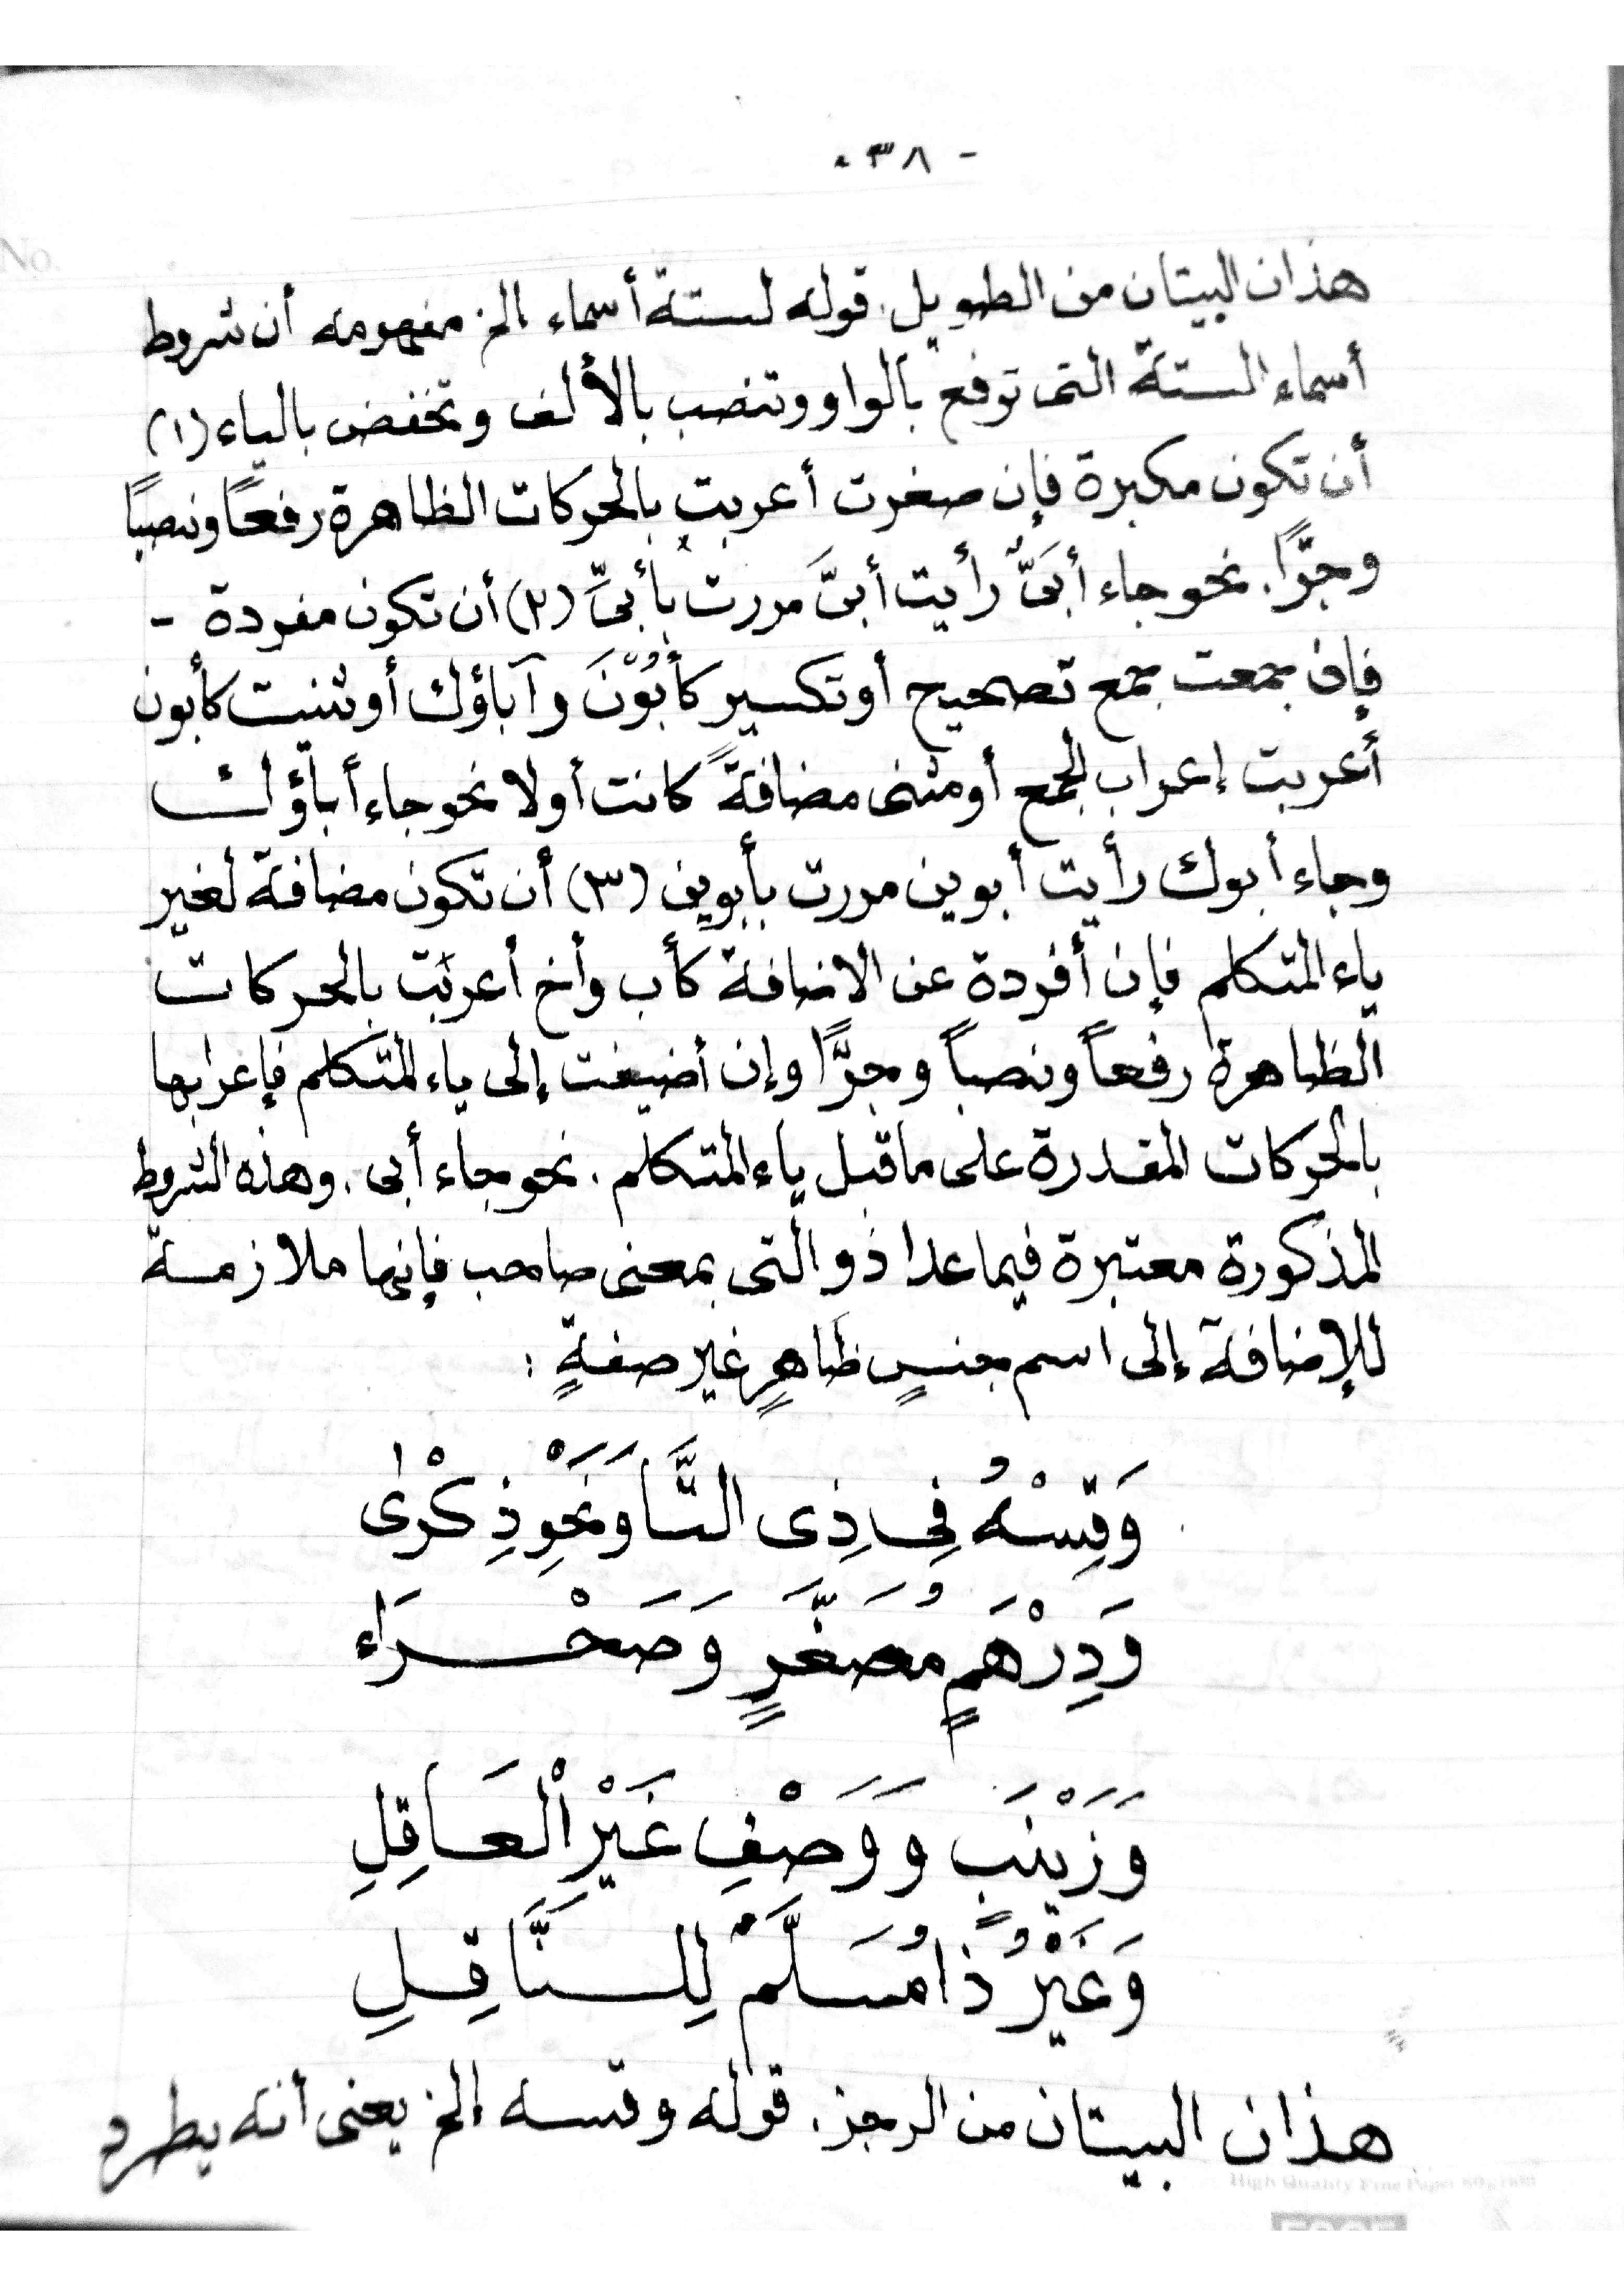 - ٣٨ -
No.
هذان البيتان من الطويل. قوله لستة أسماء الخ مفهومه أن شروط
أسماء الستة التى توفع بالواو وتنصب بالألف وتخفض بالياء (١)
أن تكون مكبرة فإن صغرت أعربت بالحركات الظاهرة رفعًا ونصبًا
وجرًّا. نحو جاء أبَىٌّ رأيت أبىَّ مررت بأبىٍّ (٢) أن تكون مفردة -
فإن جمعت جمع تصحيح أو تكسير كأَبُوْنَ وآباؤك أو ثنيت كأبون
أعربت إعراب الجمع أو مثنى مضافةً كانت أولا نحو جاء أباؤك
وجاء أبوك رأيت أبوين مررت بأبوين (٣) أن تكون مضافة لغير
ياء المتكلم فإن أفردة عن الاضافة كأب وأخ أعربت بالحركات
الظاهرة رفعاً ونصباً وجرًّا وإن أضيفت إلى ياء المتكلم فإعرابها
بالحركات المقدرة على ما قبل ياء المتكلم. نحو جاء أبى. وهذه الشروط
المذكورة معتبرة فيما عدا ذو التى بمعنى صاحب فإنها ملازمة
للإضافة إلى اسم جنسٍ ظاهرٍ غير صفةٍ :
وَقِسْهُ فِى ذِى التَّا وَنَحْوِ ذِكْرٰى
وَدِرْهَمٍ مُصَغَّرٍ وَصَحْرَاء
وَزَيْنَبٍ وَوَصْفِ غَيْرِ الْعَاقِلِ
وَغَيْرُ ذَا مُسَلَّمٌ لِلنَّاقِلِ
هذان البيتان من الرجز. قوله وقسه الخ يعنى أنه يطرد
High Quality Fine Paper